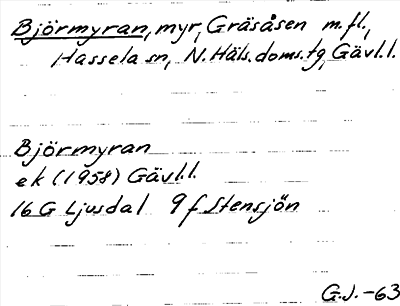 Björmyran, myr, Gräsåsen m.fl.,
Hassela sn, N.Häls.doms.tg, Gävl.l.
Björmyran
ek (1958) Gävl.l.
16 G Ljusdal 9 f Stensjön
G.J. -63